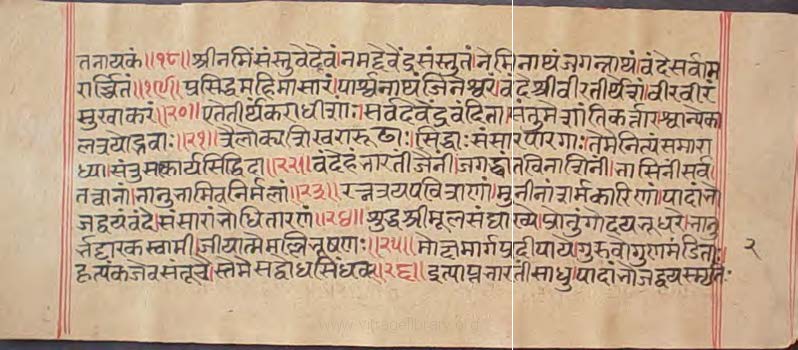 तनायकं॥१८॥श्रीनमिंसंस्तुवेदेवंनमद्देवेंद्रसंस्तुतं।नेमिनाथंजगन्नाथंवंदेसर्वाम
रार्च्चितं॥१९॥प्रसिद्धमहिमासारंपार्श्वनाथंजिनेश्वरं।वंदेश्रीवीरतीर्थेशंवीरवीरं
सुखाकरं॥२०॥एतेतीर्थकराधीशाःसर्वदेवेंद्रवंदिताः।संतुमेशांतिकर्त्तारश्चान्यका
लत्रयोद्भवाः॥२१॥त्रैलोक्यशिखरारूढाःसिद्धाःसंसारपारगाः।तेमेनित्यंसमारा
ध्याःसंतुसत्कार्यसिद्धिदाः॥२२॥वंदेहंभारतींजैनीं।जगद्ध्वांतविनाशिनीं।भासिनींसर्व
तत्वानां।भानुभामिवनिर्मलां॥२३॥रत्नत्रयपवित्राणां।मुनीनांशर्मकारिणां।पादांभो
जद्वयंवंदे।संसारांभोधितारणं॥२४॥शुद्धश्रीमूलसंघाख्यप्रांशुंगोदयभूधरे।भानु
र्भट्टारकस्वामी।जीयान्मेमल्लिभूषणः॥२५॥मोक्षमार्गप्रदीपाय।गुरुवोगुणमंडिताः
हृत्पंकजेवसंतूच्चैस्तेमेसद्बोधसिंधवः॥२६॥इत्याप्तभारतीसाधुपादांभोजद्वयस्मृतिः
२
www.vitragelibrary.org